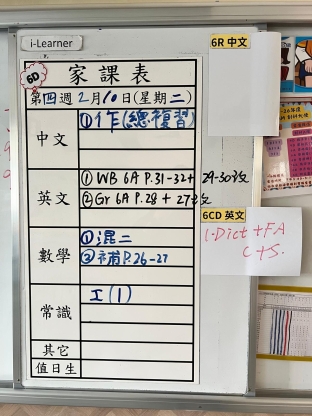 i-Learner
6R 中文
6D
家課表
第四週2月10日(星期二)
中文
①作(總複習)
英文
①WB 6A P.31-32+29-30改
②Gr 6A P.28 + 27改
6CD 英文
1.Dict + FA
C + S.
數學
①混二
②補P.26-27
常識
工(1)
其它
值日生